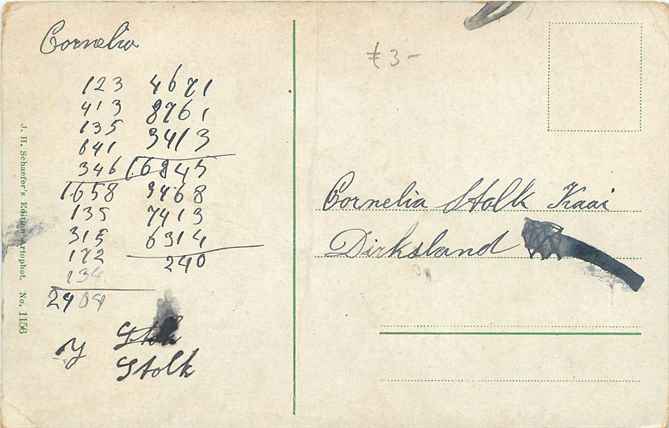 Cornelia
123 4671
413 8761
135 3413
641
346 16845
1658 9468
135 7413
315 6314
172 240
134
J. H. Schaefer's Edition Artophot. No. 1156
Y Stolk
Stolk
£3-
Cornelia Stolk Kaai
Dirksland